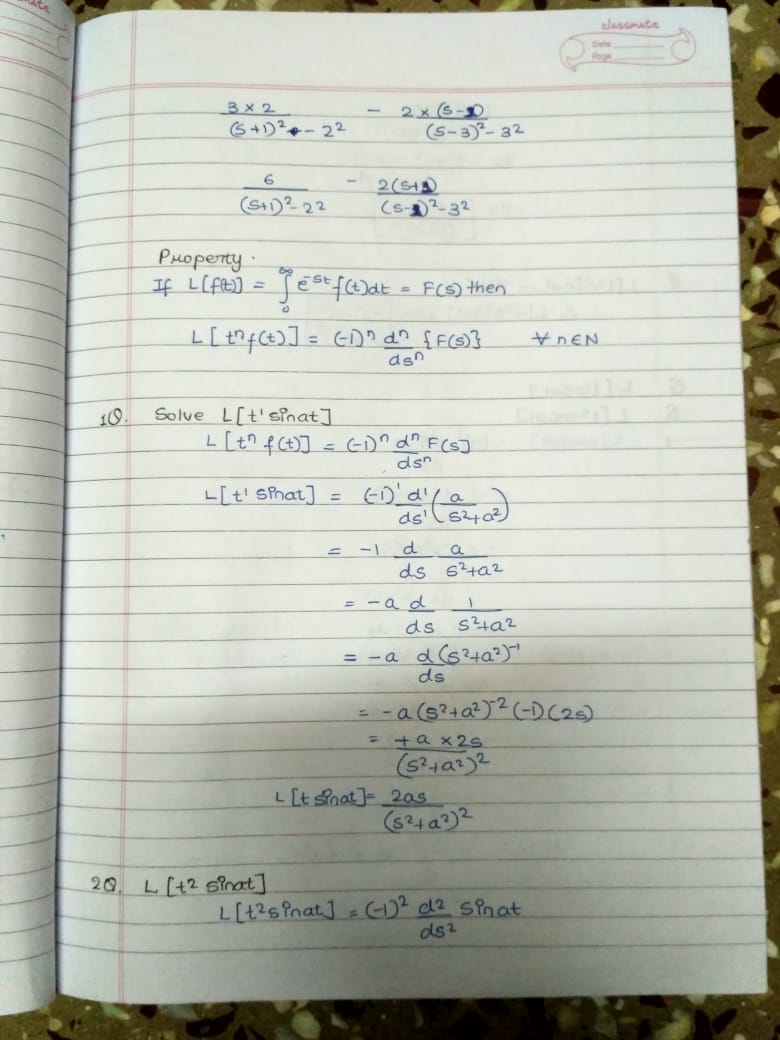 classmate
Date
Page
3 × 2 / (s+1)² - 2² - 2 × (s-1) / (s-3)² - 3²
6 / (s+1)² - 2² - 2(s+1) / (s-1)² - 3²
Property.
If L[f(t)] = ∫₀^∞ e^-st f(t)dt = F(s) then
L[tⁿf(t)] = (-1)ⁿ dⁿ/dsⁿ {F(s)} ∀ n∈N
1Q. Solve L[t' sinat]
L[tⁿ f(t)] = (-1)ⁿ dⁿ/dsⁿ F(s]
L[t' sinat] = (-1)' d'/ds' (a / s²+a²)
= -1 d/ds a / s²+a²
= -a d/ds 1 / s²+a²
= -a d/ds (s²+a²)⁻¹
= -a(s²+a²)⁻² (-1)(2s)
= +a × 2s / (s²+a²)²
L[t sinat] = 2as / (s²+a²)²
2Q. L[t² sinat]
L[t²sinat] = (-1)² d²/ds² sinat